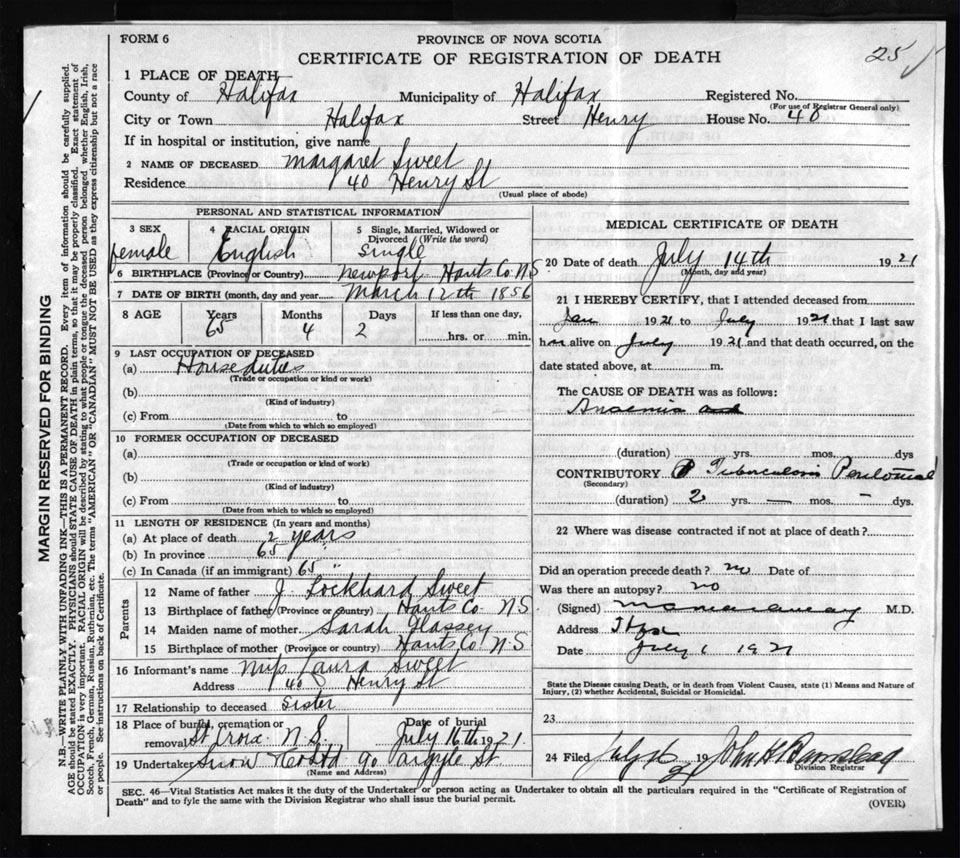 FORM 6
PROVINCE OF NOVA SCOTIA
CERTIFICATE OF REGISTRATION OF DEATH
25
1 PLACE OF DEATH
County of Halifax Municipality of Halifax Registered No.
(For use of Registrar General only)
City or Town Halifax Street Henry House No. 40
If in hospital or institution, give name
2 NAME OF DECEASED Margaret Sweet
Residence 40 Henry St
(Usual place of abode)
PERSONAL AND STATISTICAL INFORMATION
3 SEX 4 RACIAL ORIGIN 5 Single, Married, Widowed or
Divorced (Write the word)
female English Single
6 BIRTHPLACE (Province or Country) Newport Hants Co N S
7 DATE OF BIRTH (month, day and year) March 12th 1856
8 AGE Years Months Days If less than one day,
65 4 2 hrs. or min.
9 LAST OCCUPATION OF DECEASED
(a) House duties
(Trade or occupation or kind or work)
(b)
(Kind of industry)
(c) From to
(Date from which to which so employed)
10 FORMER OCCUPATION OF DECEASED
(a)
(Trade or occupation or kind of work)
(b)
(Kind of industry)
(c) From to
(Date from which to which so employed)
11 LENGTH OF RESIDENCE (In years and months)
(a) At place of death 2 years
(b) In province 65 "
(c) In Canada (if an immigrant) 65 "
Parents
12 Name of father J. Lockhard Sweet
13 Birthplace of father (Province or country) Hants Co N S
14 Maiden name of mother Sarah Glassey
15 Birthplace of mother (Province or country) Hants Co N-S
16 Informant's name Miss Laura Sweet
Address 40 Henry St
17 Relationship to deceased sister
18 Place of burial, cremation or Date of burial
removal St Croix N.S. July 16th 1921.
19 Undertaker Snow 90 Argyle St.
(Name and Address)
MEDICAL CERTIFICATE OF DEATH
20 Date of death July 14th 1921
(Month, day and year)
21 I HEREBY CERTIFY, that I attended deceased from
Jan 1921 to July 1921 that I last saw
h alive on July 1921 and that death occurred, on the
date stated above, at m.
The CAUSE OF DEATH was as follows:
Anaemia and
(duration) yrs. mos. dys
CONTRIBUTORY Tuberculosis Peritoneal
(Secondary)
(duration) 2 yrs. — mos. – dys.
22 Where was disease contracted if not at place of death?
Did an operation precede death? no Date of
Was there an autopsy? no
(Signed) M.D.
Address Hfx
Date July 1921
State the Disease causing Death, or in death from Violent Causes, state (1) Means and Nature of
Injury, (2) whether Accidental, Suicidal or Homicidal.
23
24 Filed July 19 John H Barnstead
Division Registrar
SEC. 46—Vital Statistics Act makes it the duty of the Undertaker or person acting as Undertaker to obtain all the particulars required in the "Certificate of Registration of
Death" and to fyle the same with the Division Registrar who shall issue the burial permit.
(OVER)
MARGIN RESERVED FOR BINDING
N.B.—WRITE PLAINLY WITH UNFADING INK—THIS IS A PERMANENT RECORD. Every item of information should be carefully supplied.
AGE should be stated EXACTLY. PHYSICIANS should STATE CAUSE OF DEATH in plain terms, so that it may be properly classified. Exact statement of
OCCUPATION is very important. RACIAL ORIGIN will be described by stating to what people or tongue the deceased person belonged, whether English, Irish,
Scotch, French, German, Russian, Ruthenian, etc. The terms "AMERICAN" OR "CANADIAN" MUST NOT BE USED as they express citizenship but not a race
or people. See instructions on back of Certificate.